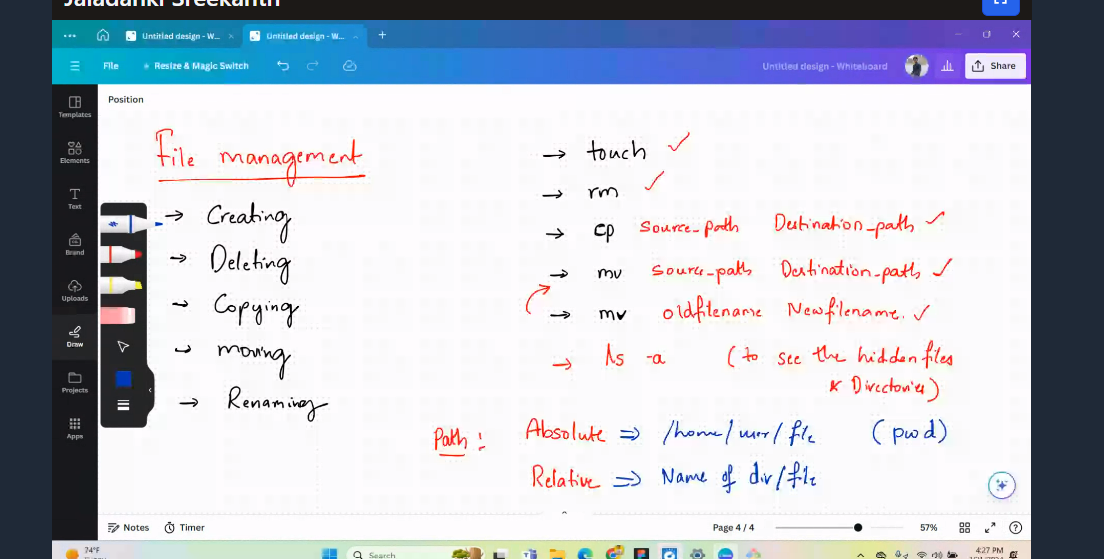 Jaladanki Sreekanth
Untitled design - W...
Untitled design - W...
File
Resize & Magic Switch
Untitled design - Whiteboard
Share
Templates
Elements
Text
Brand
Uploads
Draw
Projects
Apps
Position
File management
→ Creating
→ Deleting
→ Copying
→ moving
→ Renaming
→ touch ✓
→ rm ✓
→ cp source_path Destination_path ✓
→ mv source_path Destination_path ✓
→ mv oldfilename Newfilename. ✓
→ ls -a (to see the hidden files
& Directories)
Path : Absolute ⇒ /home/user/file (pwd)
Relative ⇒ Name of dir/file
Notes
Timer
Page 4 / 4
57%
74°F
Search
4:27 PM